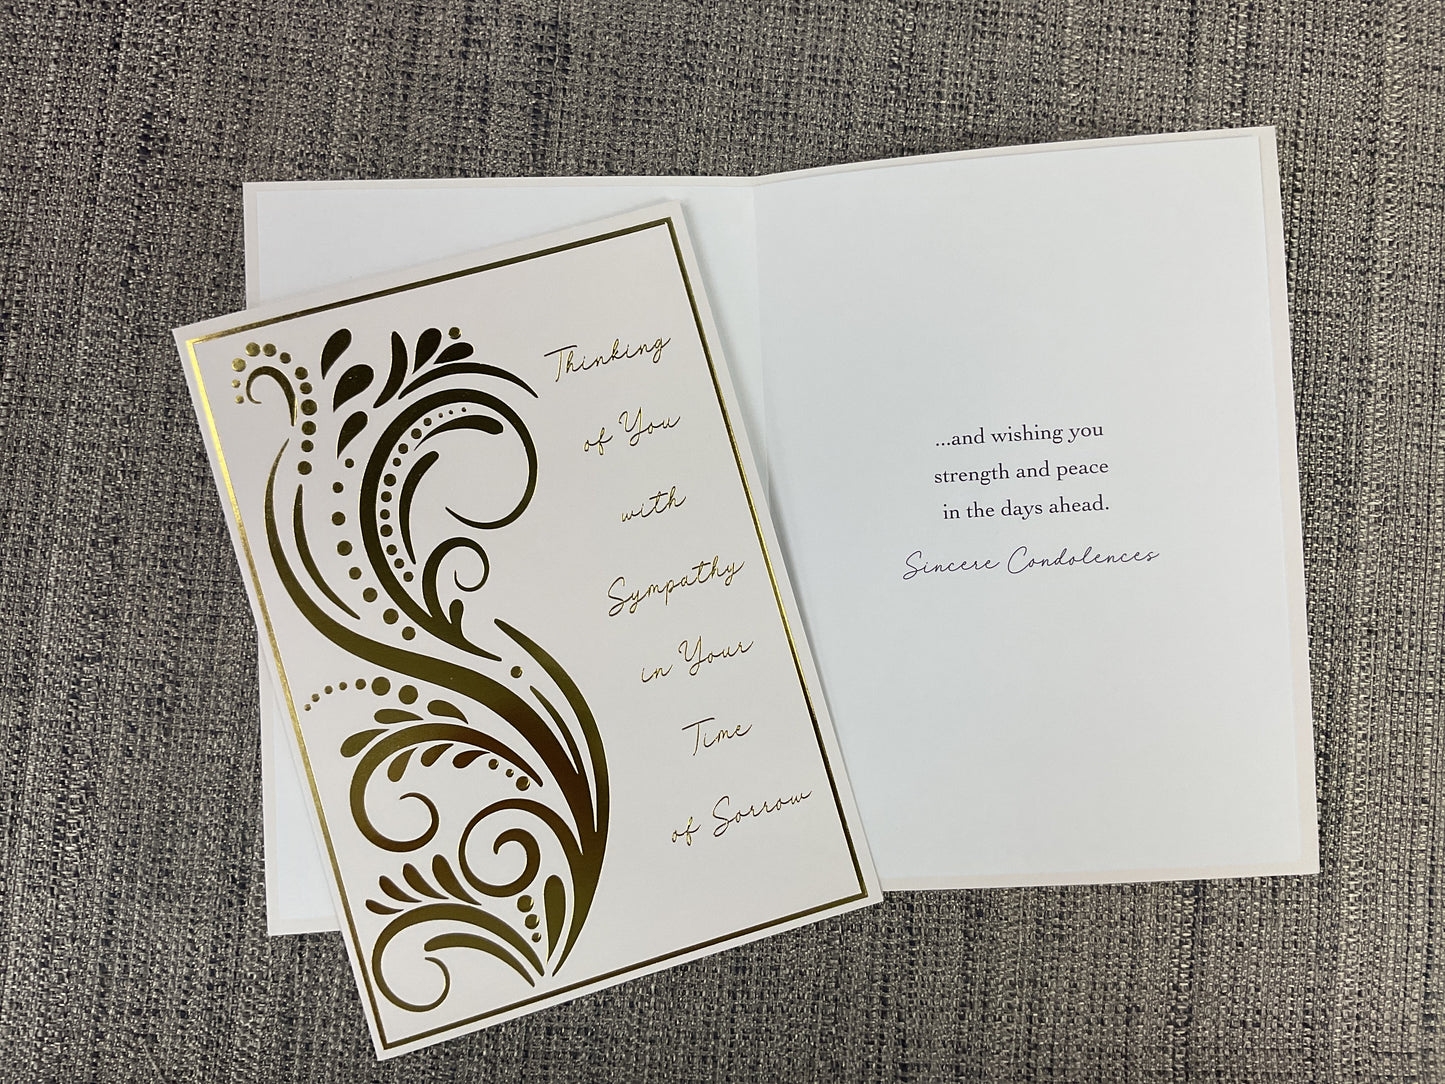 Thinking
of You
with
Sympathy
in Your
Time
of Sorrow
...and wishing you
strength and peace
in the days ahead.
Sincere Condolences